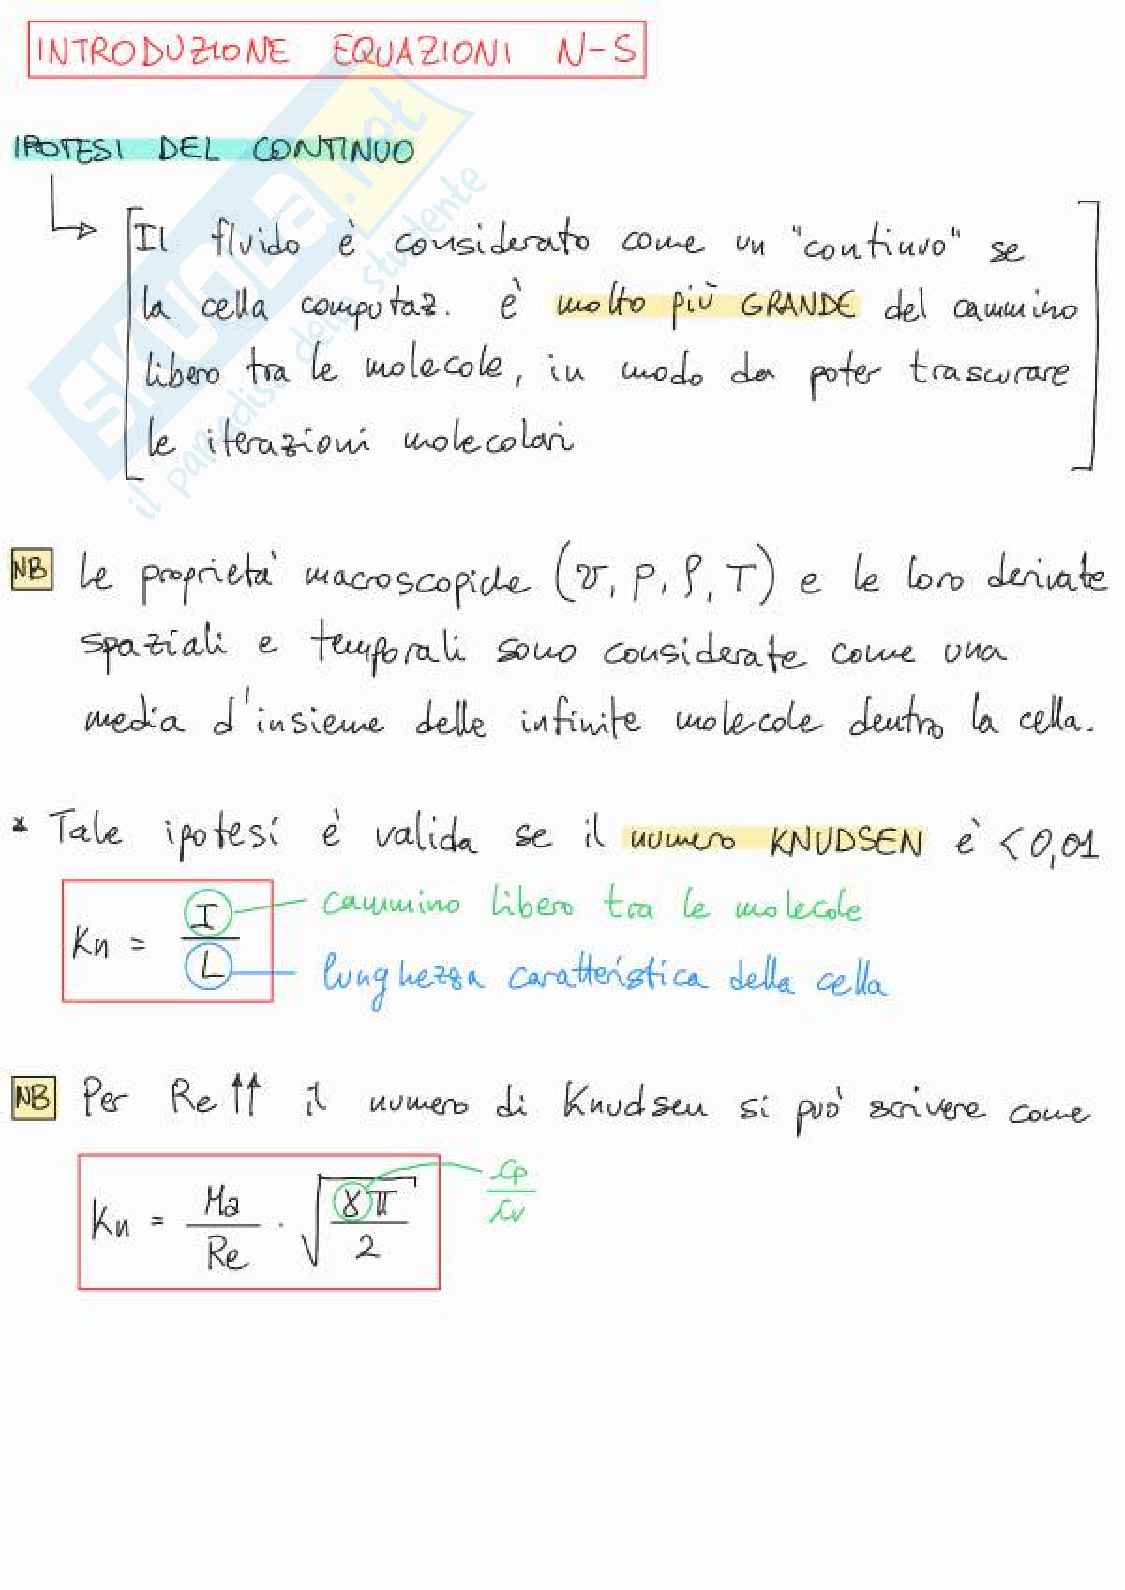 INTRODUZIONE EQUAZIONI N-S
IPOTESI DEL CONTINUO
Il fluido è considerato come un "continuo" se
la cella computaz. è molto più GRANDE del cammino
libero tra le molecole, in modo da poter trascurare
le iterazioni molecolari
SKUOLA.net
il paradiso dello studente
NB Le proprietà macroscopiche (v, p, ρ, T) e le loro derivate
spaziali e temporali sono considerate come una
media d'insieme delle infinite molecole dentro la cella.
* Tale ipotesi è valida se il numero KNUDSEN è <0,01
Kn = I / L
cammino libero tra le molecole
lunghezza caratteristica della cella
NB Per Re ↑↑ il numero di Knudsen si può scrivere come
Kn = Ma / Re · √(γπ / 2)
cp / cv